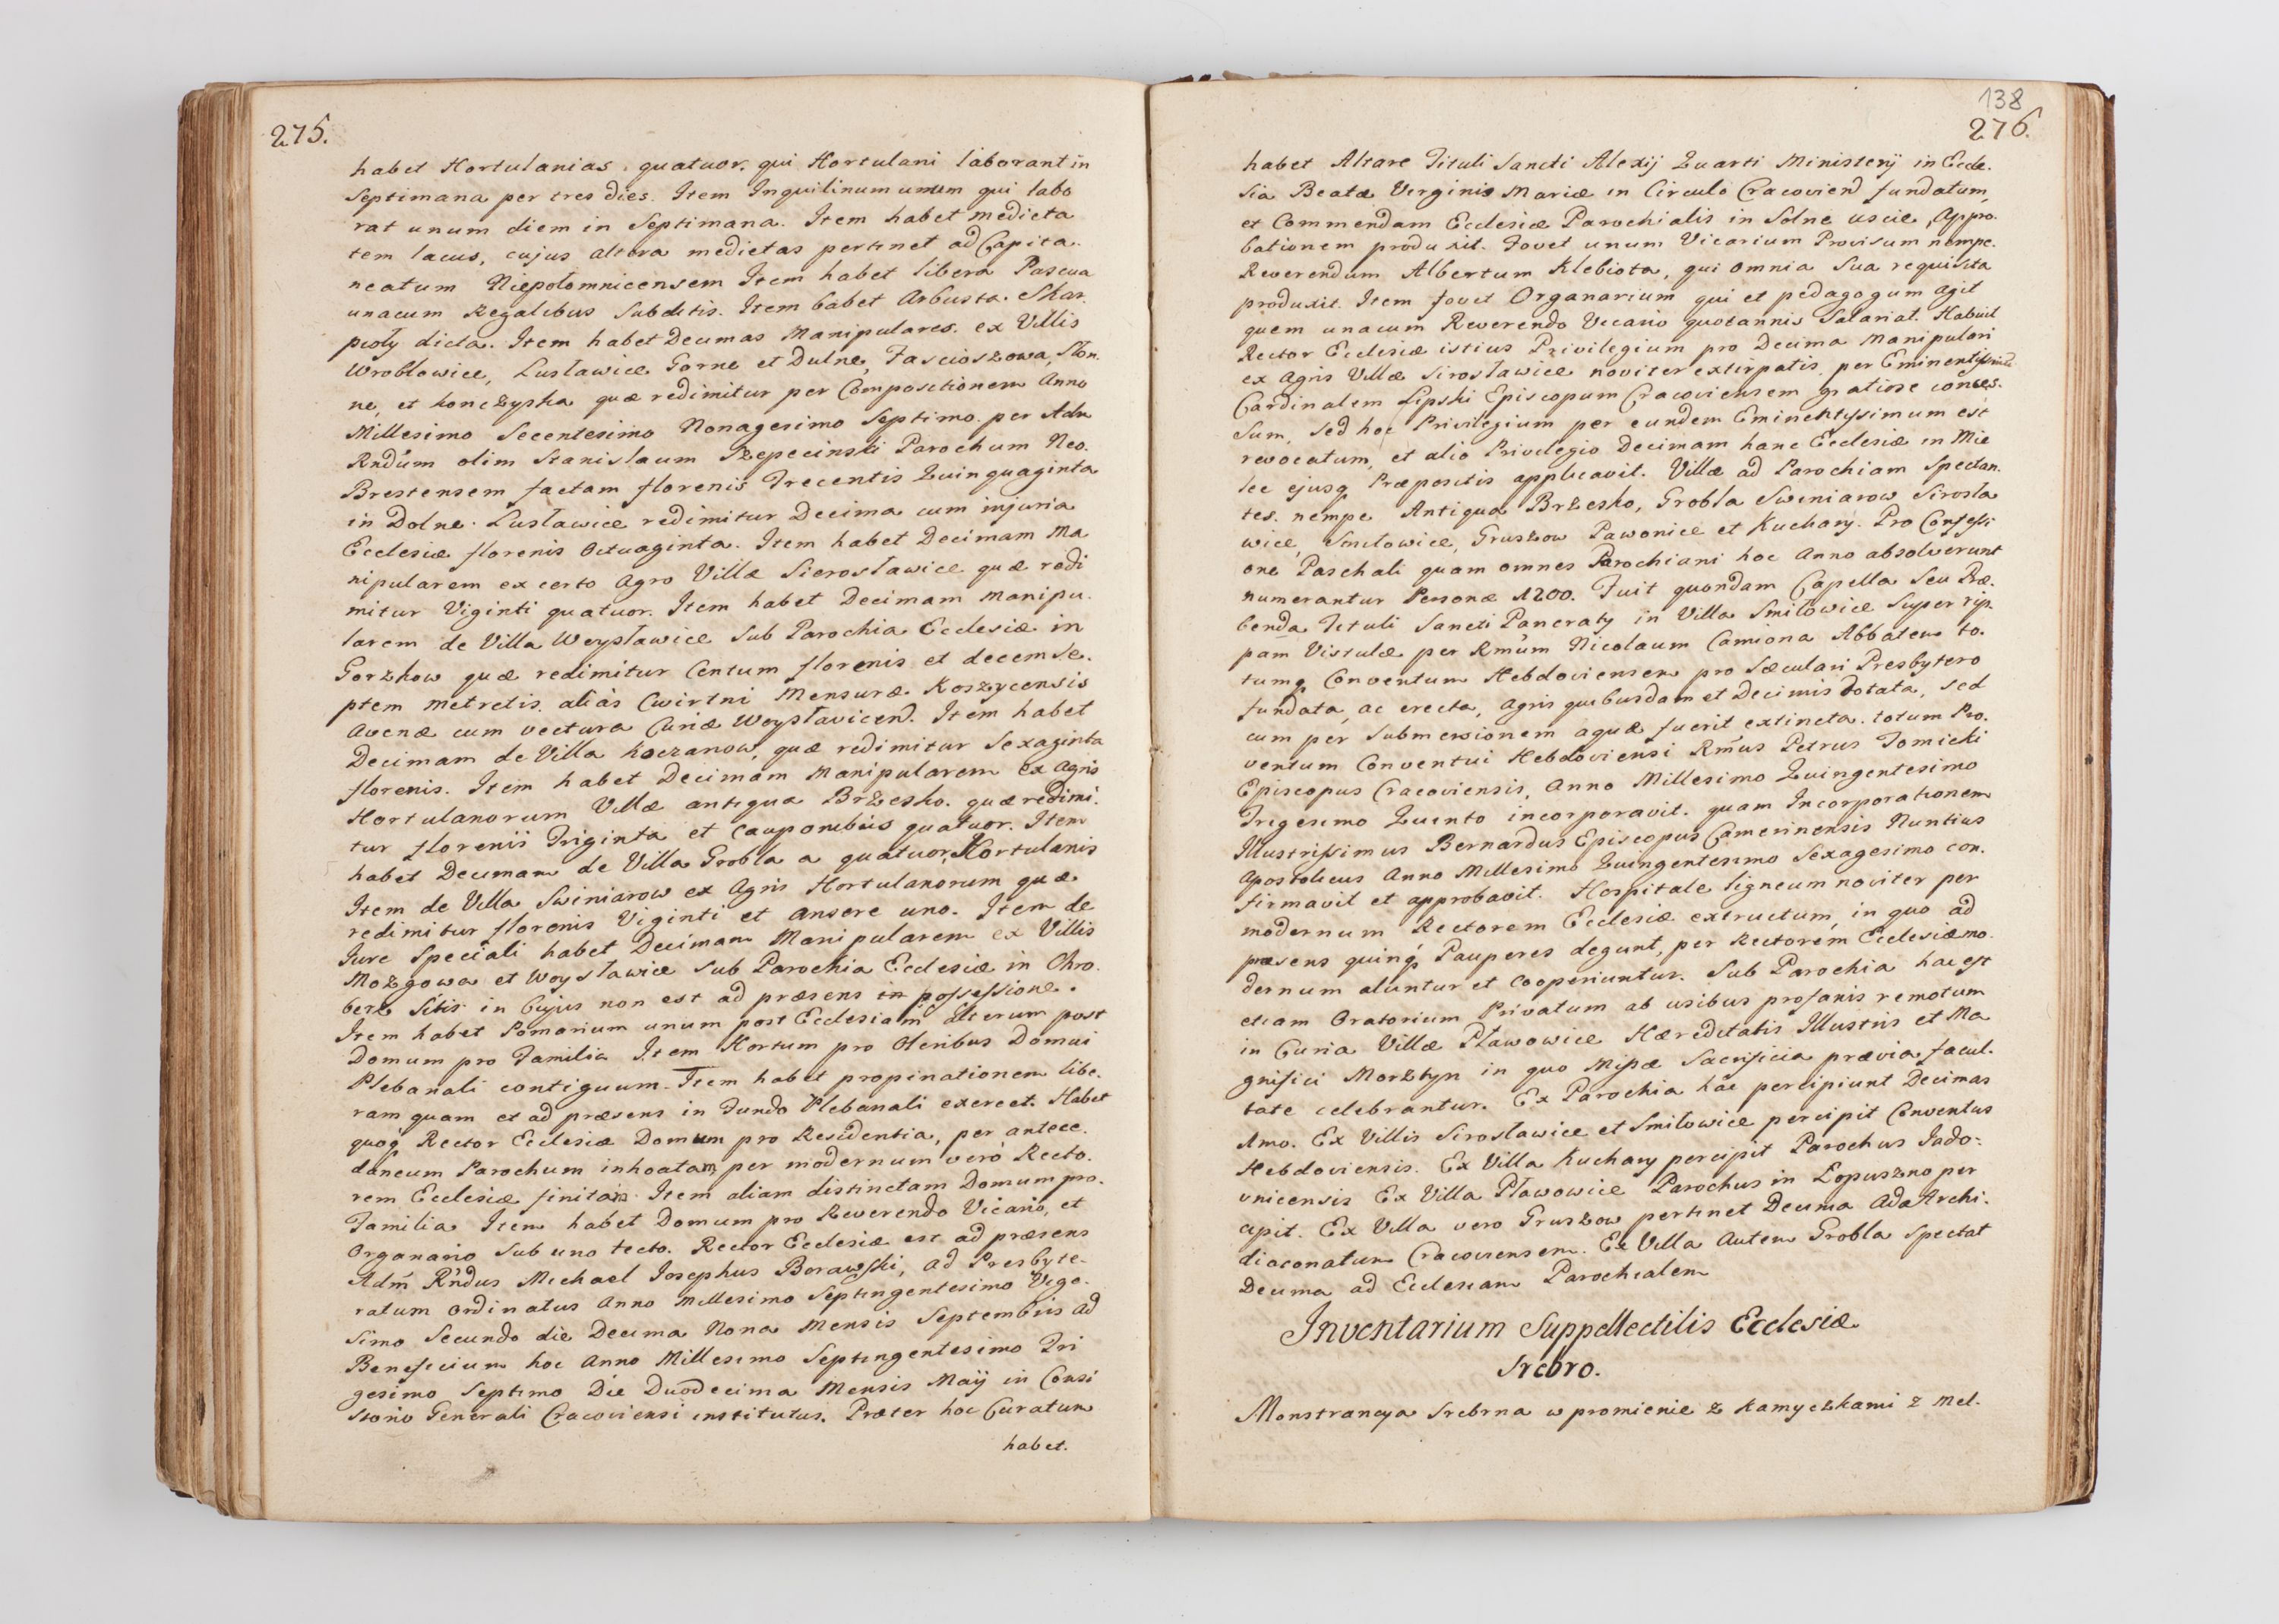 275.
habet Hortulanias quatuor, qui Hortulani laborant in
Septimana per tres dies. Item Inquilinum unum qui labo
rat unum diem in Septimana. Item habet medieta
tem lacus, cujus altera medietas pertinet ad Capita-
neatum Niepołomnicensem Item habet libera Pascua
unacum Regalibus Subditis. Item habet Arbusta. Skar.
pioły dicta. Item habet Decimas Manipulares. ex Villis
Wrobłowice, Lusławice Gorne et Dulne, Fascioszowa, Ston.
ne, et Konczyska quæ redimitur per Compositionem Anno
Millesimo Secentesimo Nonagesimo Septimo. per Adm
Rndum olim Stanislaum Rzepecinski Parochum Neo.
Brestensem factam florenis Trecentis Quinquaginta
in Dolne. Lusławice redimitur Decima cum injuria
Ecclesiæ florenis Octuaginta. Item habet Decimam Ma
nipularem ex certo Agro Villæ Sierosławice quæ redi
mitur Viginti quatuor. Item habet Decimam Manipu.
larem de Villa Woysławice Sub Parochia Ecclesiæ in
Gorzkow quæ redimitur Centum florenis et decem Se.
ptem metretis alias Cwirtni Mensuræ Koszycensis
Avenæ cum vectura Curiæ Woysłavicen. Item habet
Decimam de Villa Koczanow, quæ redimitur Sexaginta
florenis. Item habet Decimam Manipularem ex Agris
Hortulanorum Villæ antiqua Brzesko. quæ redimi.
tur florenis Triginta et Caponibus quatuor. Item
habet Decimam de Villa Grobla a quatuor Hortulanis
Item de Villa Swiniarow ex Agris Hortulanorum quæ
redimitur florenis Viginti et ansere uno. Item de
Jure Speciali habet Decimam Manipularem ex Villis
Mozgowa et Woysławice Sub Parochia Ecclesiæ in Chro.
berz Sitis in Cujus non est ad præsens in possessione.
Item habet Pomarium unum post Ecclesiam alterum post
Domum pro Familia Item Hortum pro Oleribus Domui
Plebanali contiguum. Item habet propinationem libe.
ram quam et ad præsens in Fundo Plebanali exercet. Habet
quoq Rector Ecclesiæ Domum pro Residentia, per antece.
daneum Parochum inhoatam per modernum vero Recto.
rem Ecclesiæ finitam. Item aliam distinctam Domum pro.
Familia Item habet Domum pro Reverendo Vicario, et
Organario Sub uno tecto. Rector Ecclesiæ est ad præsens
Adm Rndus Michael Josephus Borawski, ad Presbyte-
ratum Ordinatus Anno Millesimo Septingentesimo Vige.
simo Secundo die Decima Nona Mensis Septembris ad
Beneficium hoc Anno Millesimo Septingentesimo Tri
gesimo Septimo Die Duodecima Mensis Maij in Consi
storio Generali Cracoviensi institutus. Præter hoc Curatum
habet.
138
276.
habet Altare Tituli Sancti Alexij Quarti Ministerij in Eccle.
sia Beatæ Virginis Mariæ in Circulo Cracovien fundatum,
et Commendam Ecclesiæ Parochialis in Solne uscie, Appro.
bationem produxit. Fovet unum Vicarium Provisum nempe.
Reverendum Albertum Klebiota, qui omnia Sua requisita
produxit. Item fovet Organarium qui et pedagogum agit
quem unacum Reverendo Vicario quotannis Salariat. Habuit
Rector Ecclesiæ istius Privilegium pro Decima Manipulari
ex Agris Villæ Sirosławice noviter extirpatis, per Eminentissimu
Cardinalem Lipski Episcopum Cracoviensem gratiose conces.
sum, Sed hoc Privilegium per eundem Eminentissimum est
revocatum, et alio Privilegio Decimam hanc Ecclesiæ in Mie
lec ejusq Præpositis applicavit. Villæ ad Parochiam Spectan.
tes. nempe Antiqua Brzesko, Grobla Swiniarow Sirosła
wice, Smiłowice, Gruszow Pawonice et Kuchary. Pro Confessi
one Paschali quam omnes Parochiani hoc Anno absolverunt
numerantur Personæ 1200. Fuit quondam Capella Seu Præ.
benda Tituli Sancti Pancratij in Villa Smiłowice Super rip.
pam Vistulæ per Rmum Nicolaum Camiona Abbatem to.
tumq Conventum Hebdoviensem pro Sæculari Presbytero
fundata, ac erecta, Agris quibusdam et Decimis dotata, sed
cum per Submersionem aquæ fuerit extincta. totum Pro.
ventum Conventui Hebdoviensi Rmus Petrus Tomicki
Episcopus Cracoviensis, Anno Millesimo Quingentesimo
Trigesimo Quinto incorporavit. quam Incorporationem
Illustrissimus Bernardus Episcopus Camerinensis Nuntius
Apostolicus Anno Millesimo Quingentesimo Sexagesimo con.
firmavit et approbavit. Hospitale ligneum noviter per
modernum Rectorem Ecclesiæ extructum, in quo ad
præsens quinq Pauperes degunt, per Rectorem Ecclesiæ mo.
dernum aluntur et Cooperiuntur. Sub Parochia hac est
etiam Oratorium Privatum ab usibus profanis remotum
in Curia Villæ Pławowice Hæreditatis Illustris et Ma
gnifici Morsztyn in quo Missæ Sacrificia prævia facul.
tate celebrantur. Ex Parochia hac percipiunt Decimas
Amo. Ex Villis Sirosławice et Smiłowice percipit Conventus
Hebdoviensis. Ex Villa Kuchary percipit Parochus Jado-
vnicensis Ex Villa Pławowice Parochus in Łopuszno per
cipit. Ex Villa vero Gruszow pertinet Decima Ada Archi.
diaconatum Cracoviensem. Ex Villa Autem Grobla Spectat
Decima ad Ecclesiam Parochialem
Inventarium Suppellectilis Ecclesiæ
Srebro.
Monstrancya Srebrna w promienie z Kamyczkami z Mel.